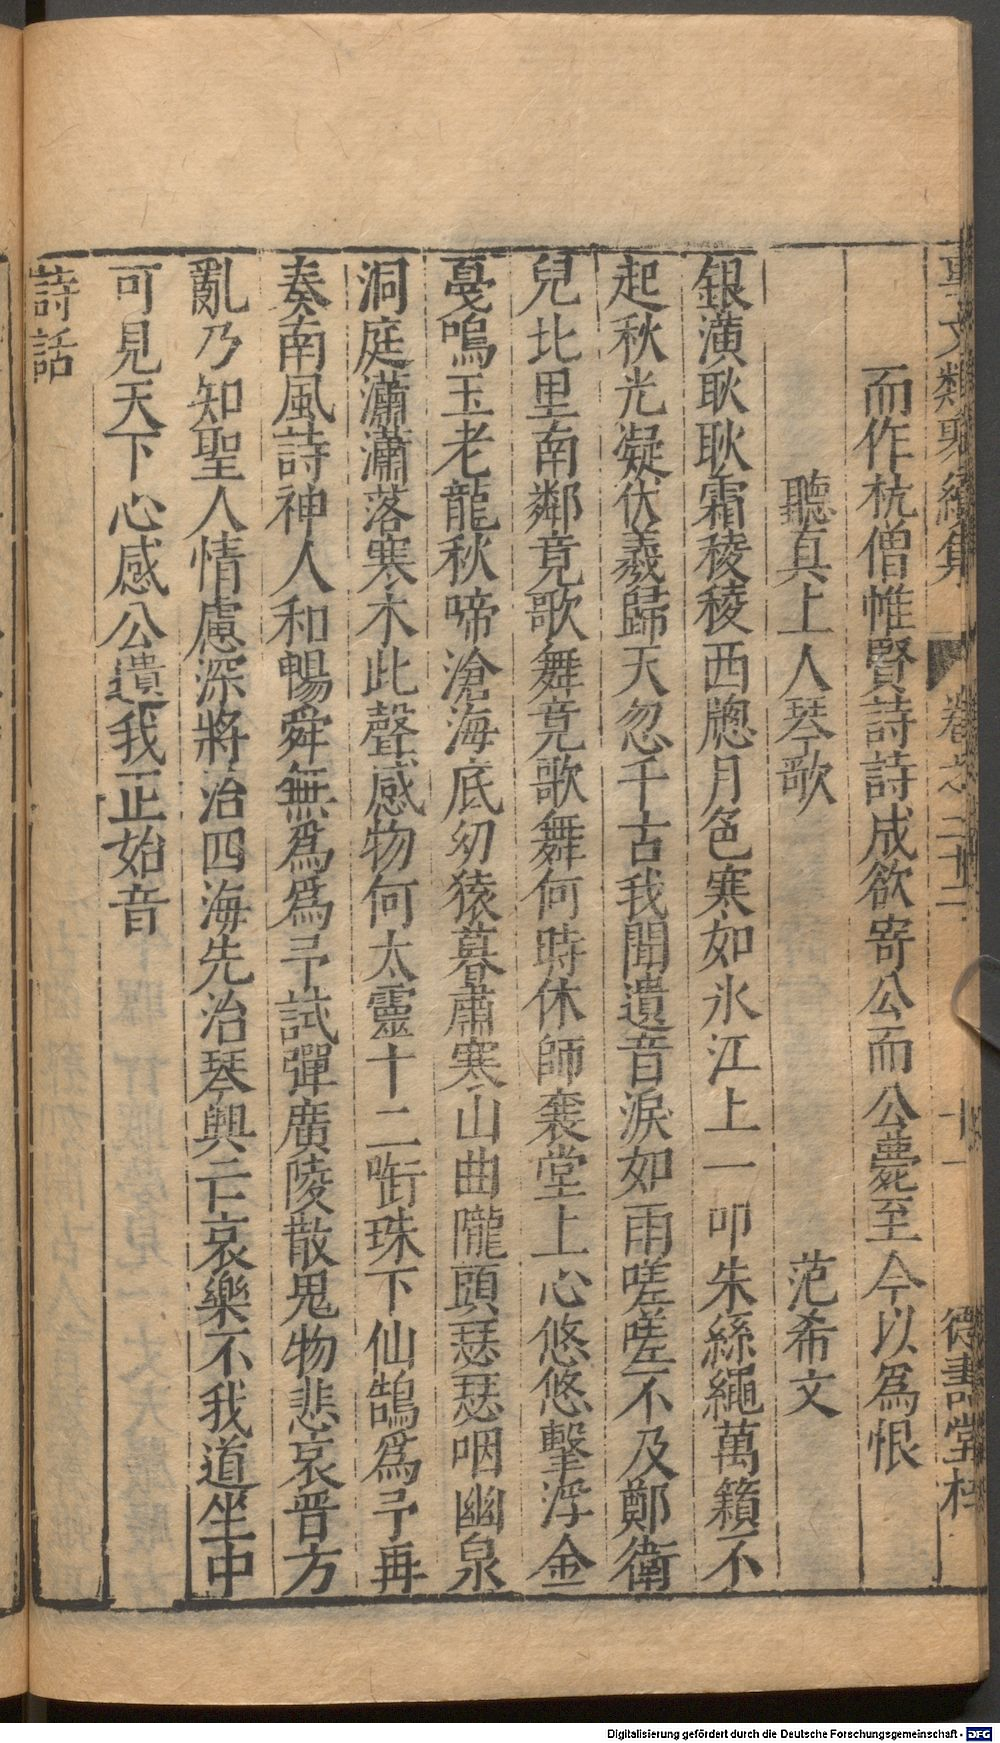 事文類聚續集 卷之二十二 十一 德壽堂梓
而作杭僧惟賢詩詩成欲寄公而公薨至今以爲恨
聽真上人琴歌 范希文
銀潢耿耿霜稜稜西牕月色寒如氷江上一叩朱絲繩萬籟不
起秋光凝伏羲歸天忽千古我聞遺音淚如雨嗟嗟不及鄭衛
兒比里南鄰竟歌舞竟歌舞何時休師襄堂上心悠悠擊浮金
戞鳴玉老龍秋啼滄海底幼猿暮肅寒山曲隴頭瑟瑟咽幽泉
洞庭瀟瀟落寒木此聲感物何太靈十二啣珠下仙鵠爲予再
奏南風詩神人和暢舜無爲爲予試彈廣陵散鬼物悲哀晋方
亂乃知聖人情慮深將治四海先治琴興亡哀樂不我道坐中
可見天下心感公遺我正始音
詩話
Digitalisierung gefördert durch die Deutsche Forschungsgemeinschaft - DFG